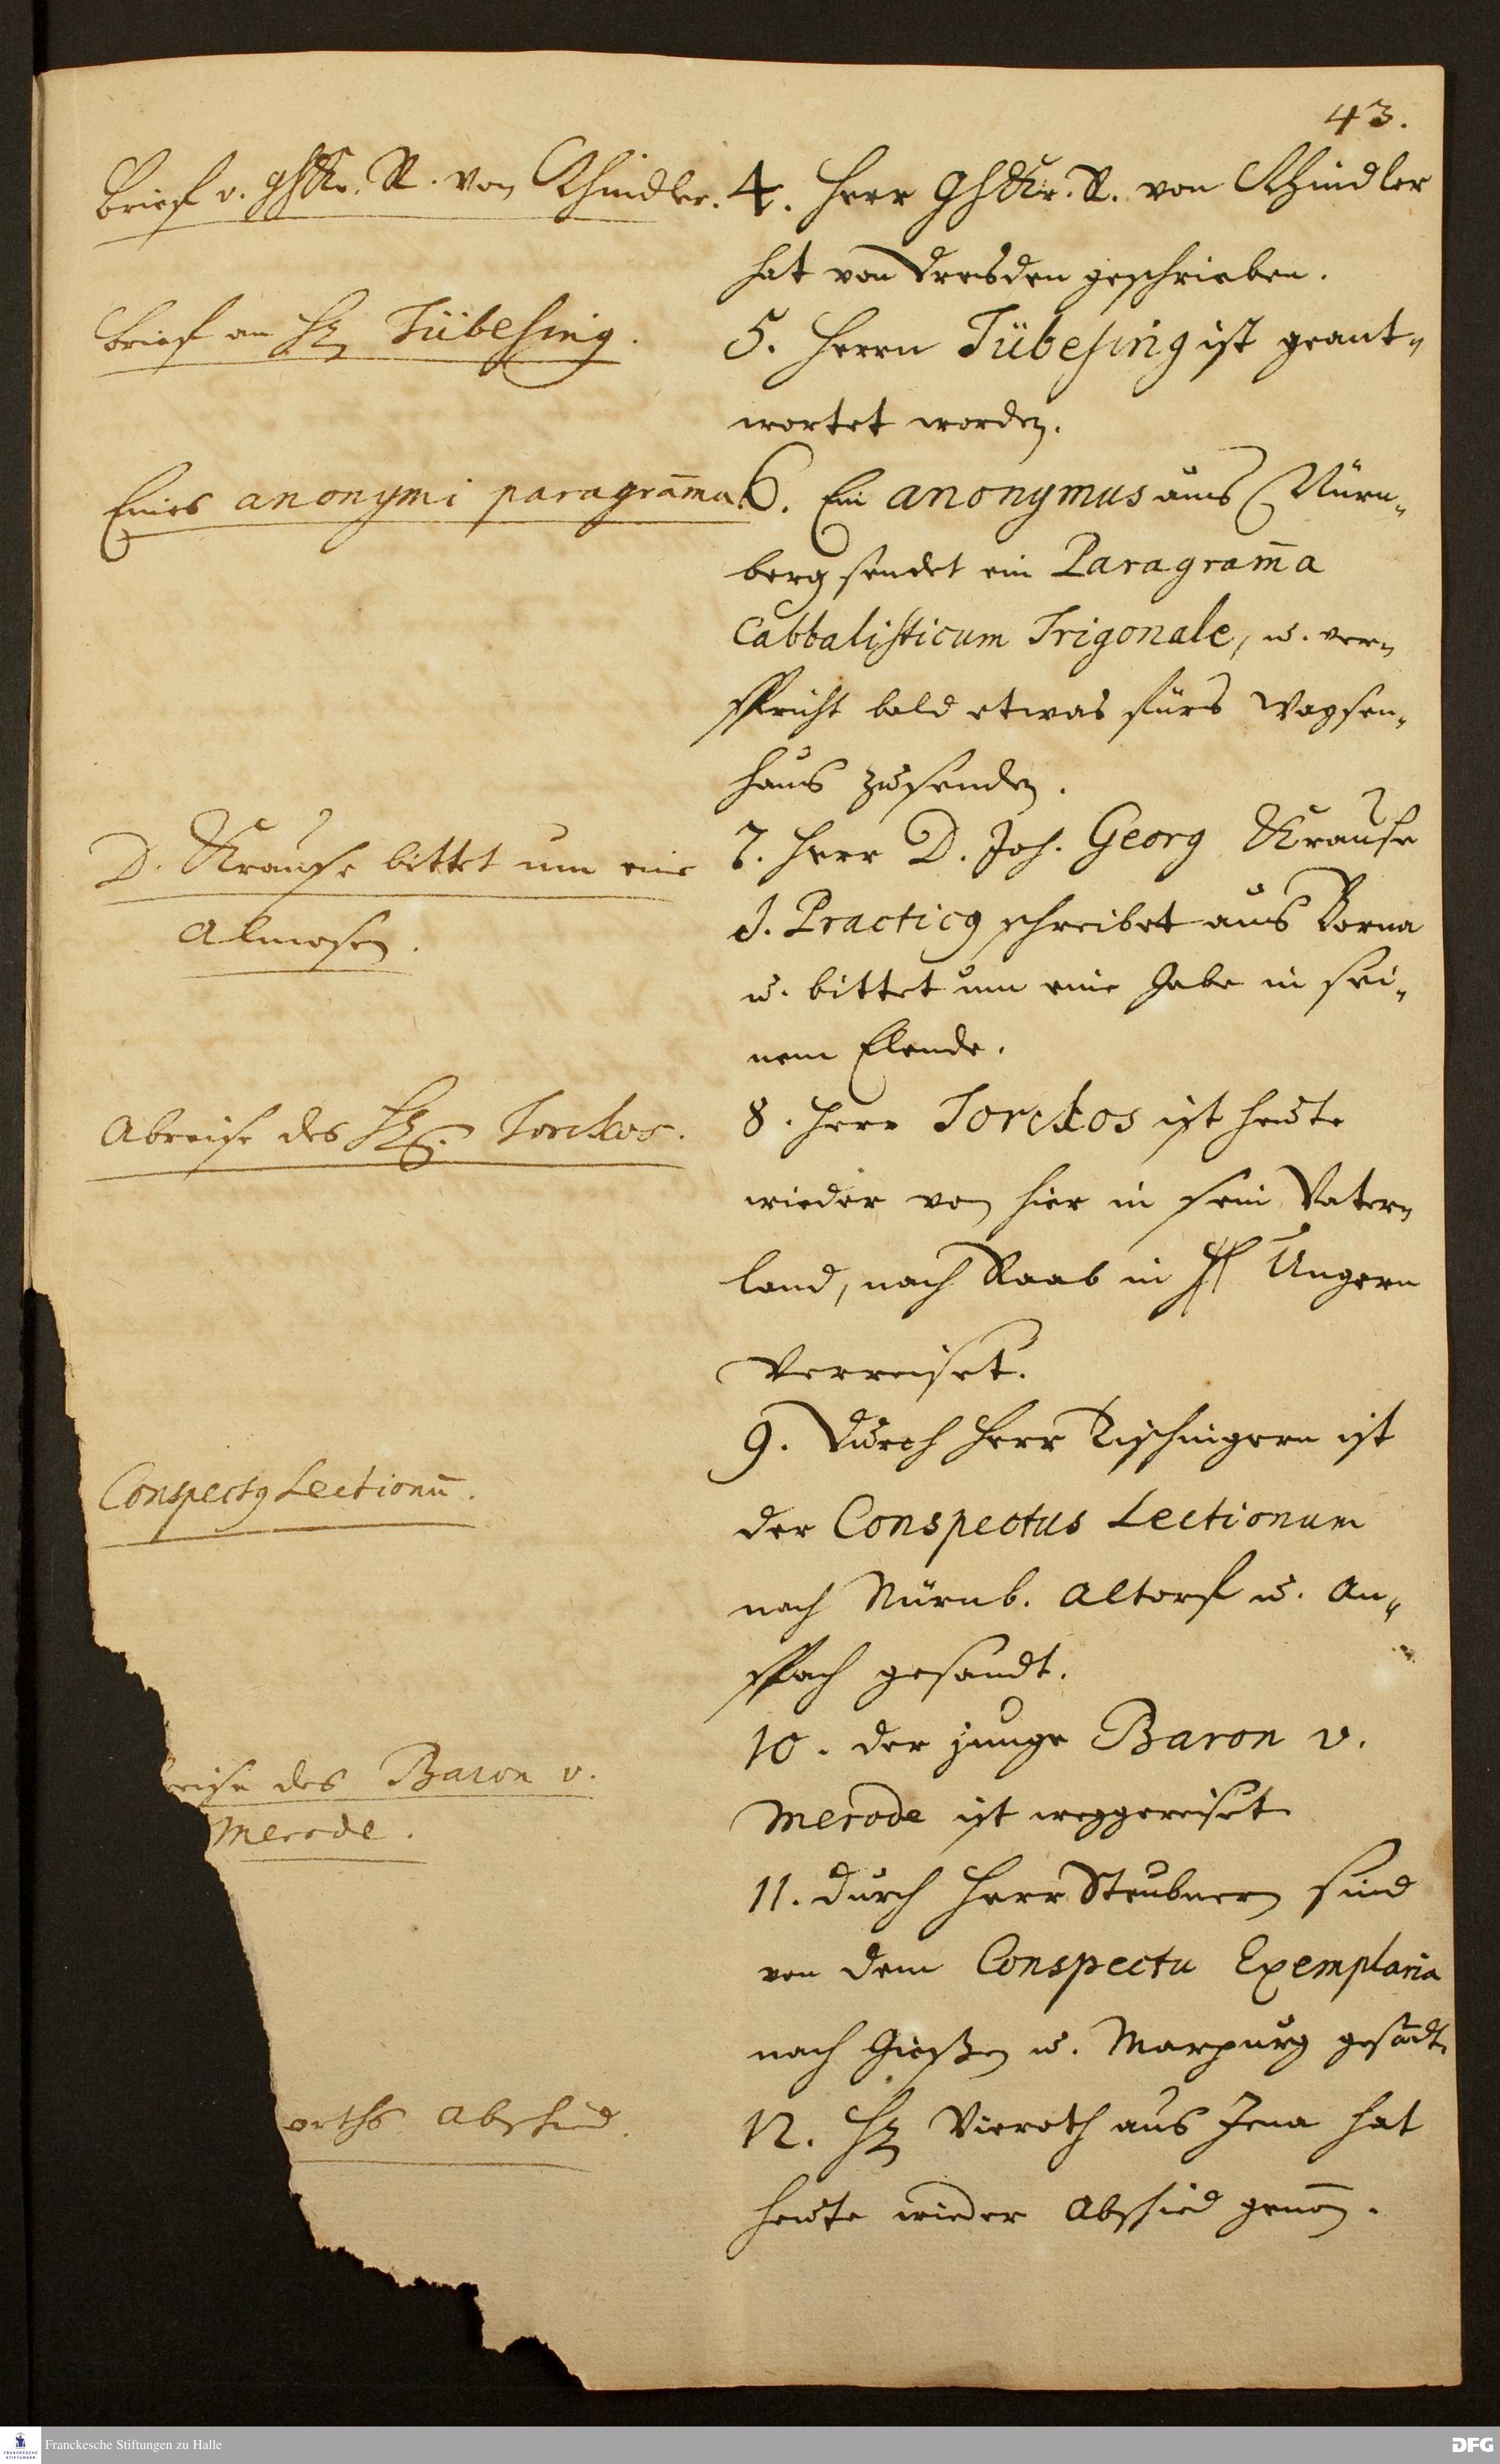 43.
Brief v. GhKr. R. von Schindler.
4. Herr GhKr. R. von Schindler
hat von Dresden geschrieben.
Brief an H. Tübesing.
5. Herrn Tübesing ist geant-
wortet worden.
Eines anonymi paragram̄a.
6. Ein anonymus aus Nürn-
berg sendet ein Paragram̄a
Cabbalisticum Trigonale, u. ver-
spricht bald etwas fürs Waysen-
haus zusenden.
D. Krause bittet um eine
Almosen.
7. Herr D. Joh. Georg Krause
J. Practicus schreibet aus Borna
u. bittet um eine Gabe in sei-
nem Elende.
Abreise des H. Torckos.
8. Herr Torckos ist heute
wieder von hier in sein Vater-
land, nach Raab in Ungern
verreiset.
Conspectus Lectionū.
9. Durch Herr Tischingern ist
der Conspectus Lectionum
nach Nürnb. Altorf u. An-
spach gesandt.
reise des Baron v.
Merode.
10. der junge Baron v.
Merode ist weggereiset
11. durch Herr Steubnern sind
von dem Conspectu Exemplaria
nach Gießen u. Marpurg gesādt.
orths Abschied.
12. H. Vieroth aus Jena hat
heute wieder Abschied genom̄en.
Franckesche Stiftungen zu Halle
DFG